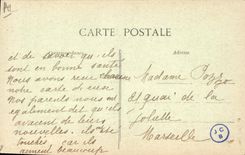 CARTE POSTALE
Adresse
et de savoir qu'ils
sont en bonne santé
Nous avons reçu chacun
notre carte de
Nos parents nous ont
egalement dit qu'ils
avaient de leurs
nouvelles. ils
touchés car ils
aiment beaucoup
Madame
quai de la
Joliette
Marseille
J C
B